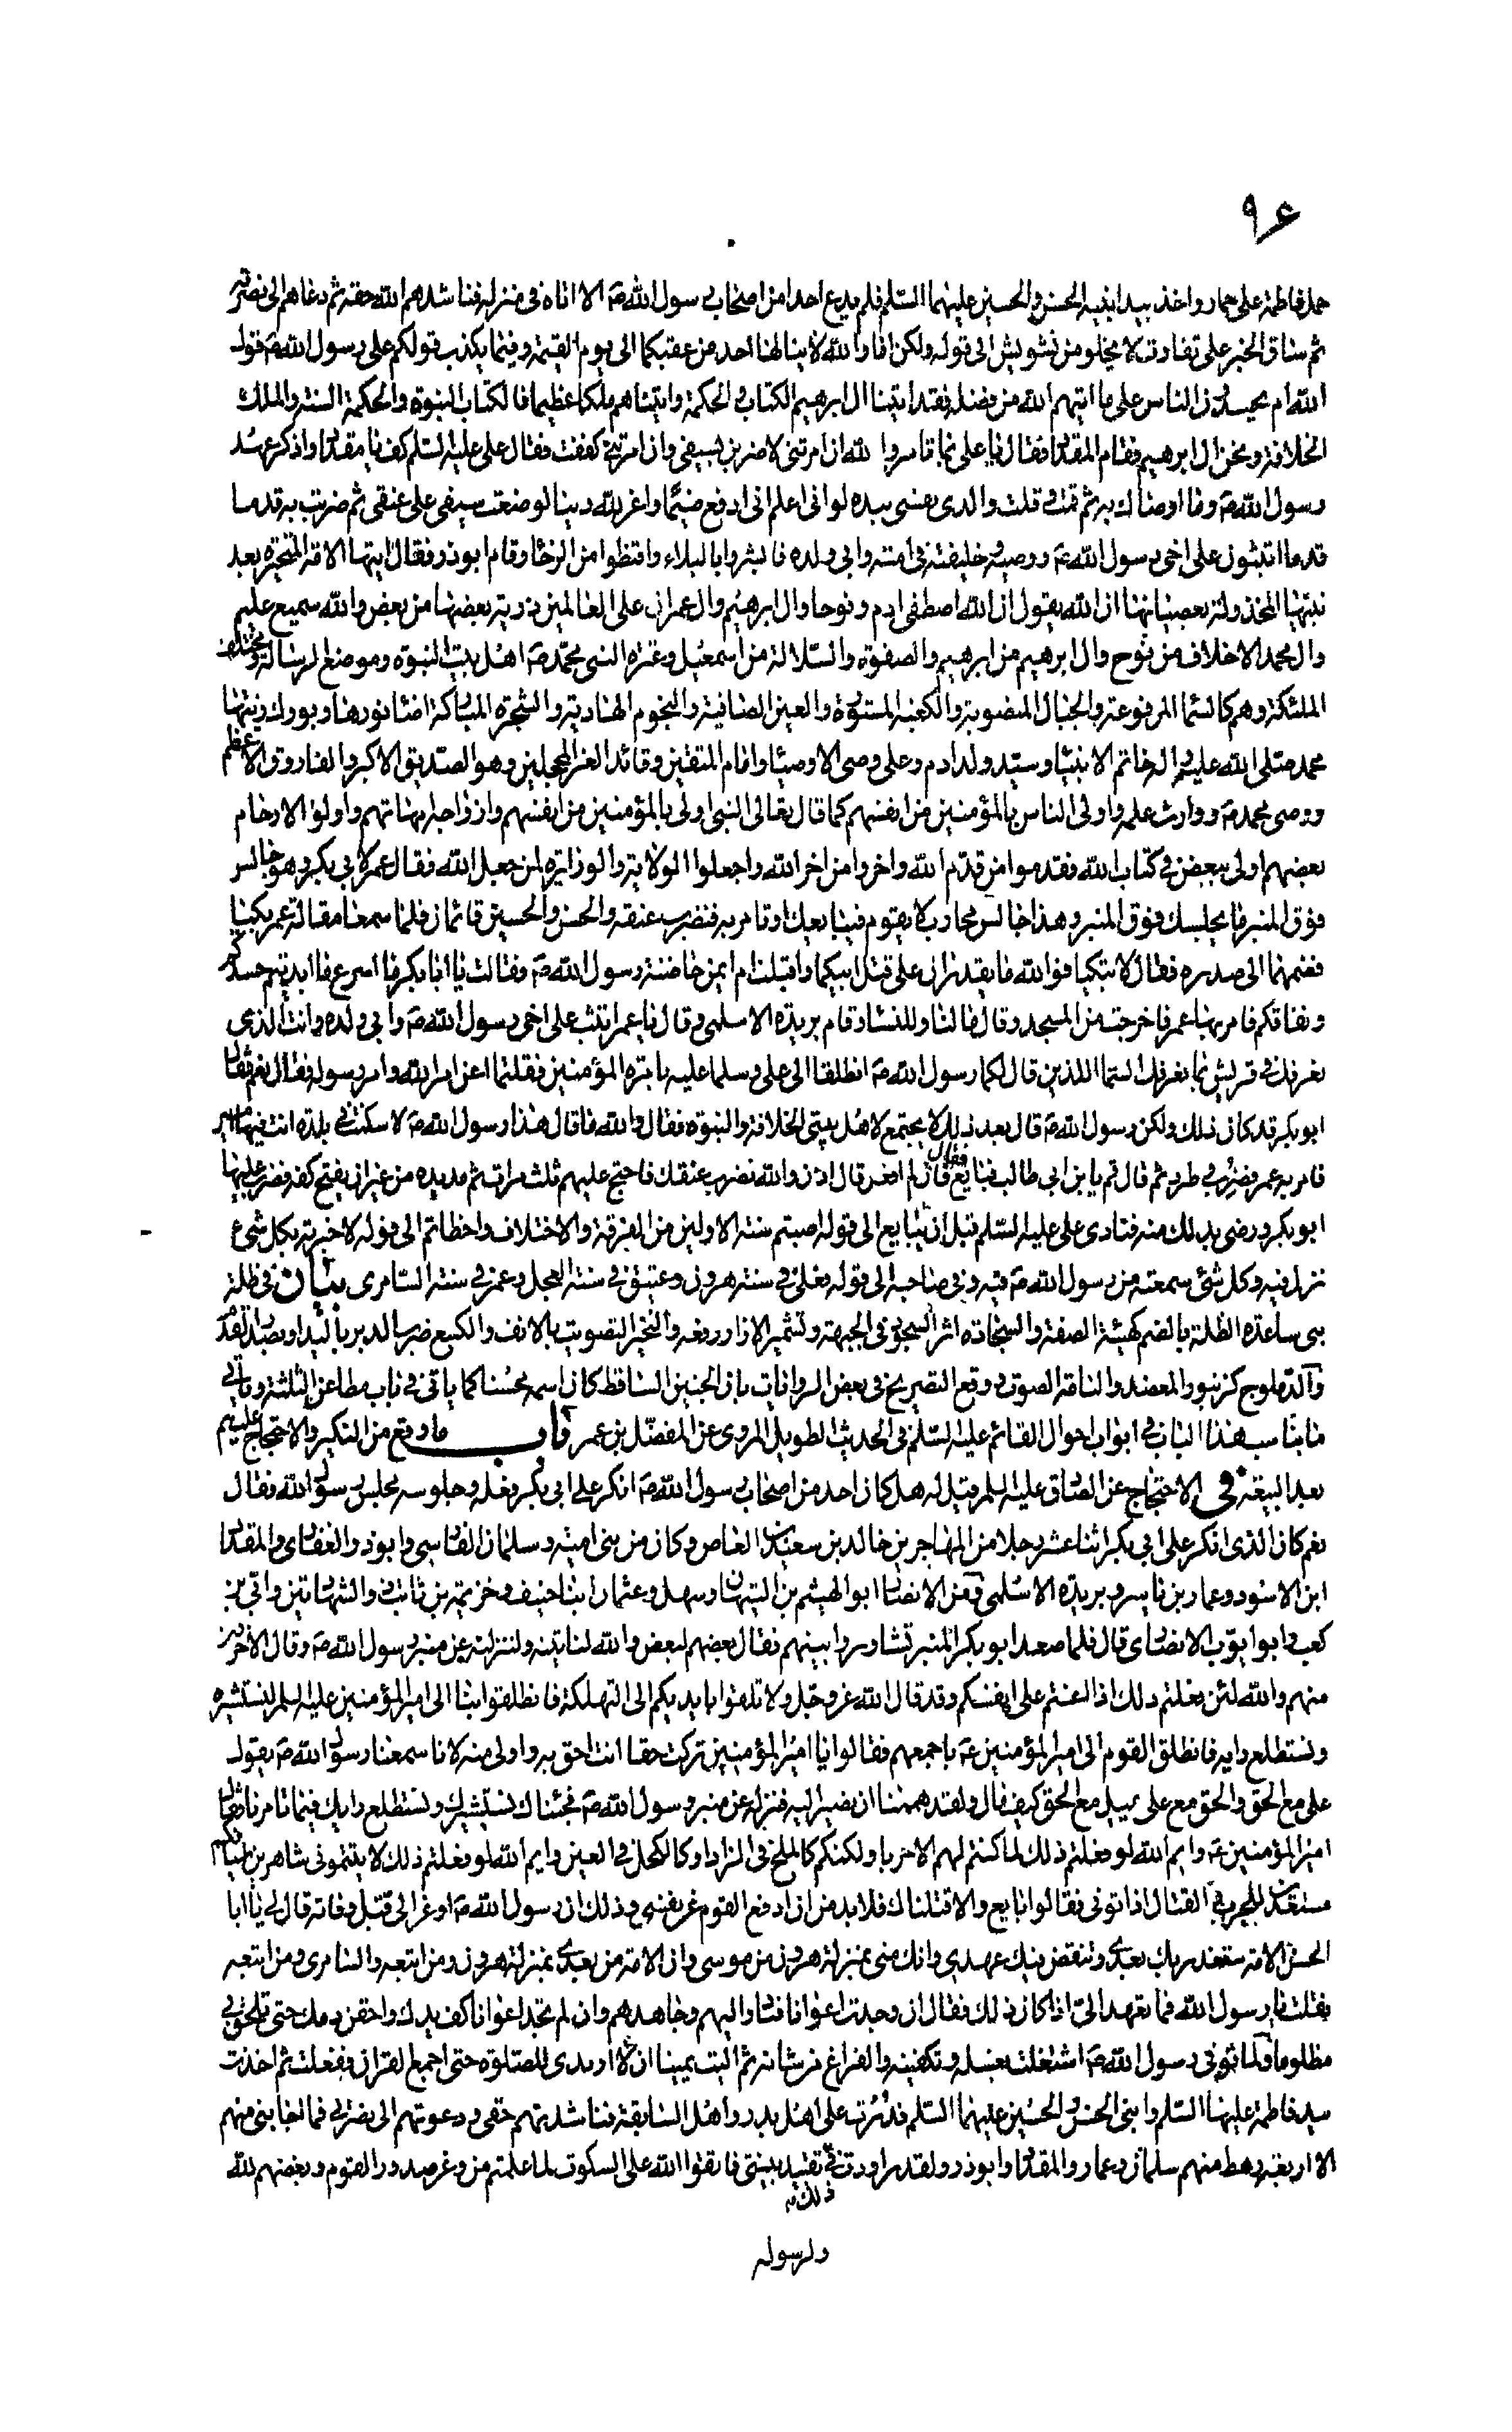 ٩٤
حمل فاطمة على حمار واخذ بيد ابنيه الحسن والحسين عليهما السّلم فلم يدع احدا من اصحاب رسول اللّٰه صَ الا اتاه فى منزله فناشدهم اللّٰه حقه ثم دعاهم الى نصرته
ثم ساق الخبر على تفاوت لا يخلو من تشويش الى قوله ولكن انا واللّٰه لا ينالها احد من عقبكما الى يوم القيمة وفيما يكذب قولكم على رسول اللّٰه صَ قول
اللّٰه ام يحسدون الناس على ما اتيهم اللّٰه من فضله فقد اتينا ال ابرهيم الكتاب والحكمة واتيناهم ملكا عظيما فالكتاب النبوة والحكمة السنة والملك
الخلافة ونحن ال ابرهيم فقام المقداد فقال يا على بما تامر واللّٰه ان امرتنى لاضربن بسيفى وان امرتنى كففت فقال على عليه السّلم كف يا مقداد واذكر عهد
رسول اللّٰه صَ وما اوصاك به ثم قمت وقلت والذى نفسى بيده لو انى اعلم انى ادفع ضيما واعز للّٰه دينا لوضعت سيفى على عنقى ثم ضربت به قدما
قدما اتثبون على اخى رسول اللّٰه صَ ووصيه وخليفته فى امته وابى ولده فابشروا بالبلاء واقنطوا من الرخاء وقام ابوذر فقال ايتها الامة المتحيرة بعد
نبيها المخذولة بعصيانها ان اللّٰه يقول ان اللّٰه اصطفى ادم ونوحا وال ابرهيم وال عمران على العالمين ذرية بعضها من بعض واللّٰه سميع عليم
وال محمد الاخلاف من نوح وال ابرهيم من ابرهيم والصفوة والسّلالة من اسمعيل وعترة النبى محمّد صَ اهل بيت النبوة وموضع الرسالة ومختلف
الملئكة وهم كالسّماء المرفوعة والجبال المنصوبة والكعبة المستورة والعين الصافية والنجوم الهادية والشجرة المباركة اضاء نورها وبورك زيتها
محمد صلى اللّٰه عليه واله خاتم الانبياء وسيّد ولد ادم وعلى وصى الاوصياء وامام المتقين وقائد الغر المحجلين وهو الصّديق الاكبر والفاروق الاعظم
ووصى محمد صَ ووارث علمه واولى الناس بالمؤمنين من انفسهم كما قال تعالى النبى اولى بالمؤمنين من انفسهم وازواجه امهاتهم واولوا الارحام
بعضهم اولى ببعض فى كتاب اللّٰه فقدموا من قدّم اللّٰه واخروا من اخر اللّٰه واجعلوا الولاية والوزارة لمن جعل اللّٰه فقال عمر لابى بكر وهو جالس
فوق المنبر ما يجلسك فوق المنبر وهذا جالس محارب لا يقوم فيبايعك او تامر به فنضرب عنقه والحسن والحسين قائمان فلما سمعا مقالة عمر بكيا
فضمهما الى صدره فقال لا تبكيا فواللّٰه ما يقدران على قتل ابيكما واقبلت ام ايمن حاضنة رسول اللّٰه صَ فقالت يا ابا بكر ما اسرع ما ابديتم حسدكم
ونفاقكم فامر بها عمر فاخرجت من المسجد وقال ما لنا وللنساء وقام بريدة الاسلمى وقال يا عمر اتثب على اخى رسول اللّٰه صَ وابى ولده وانت الذى
نعرفك فى قريش بما نعرفك الستما اللذين قال لكما رسول اللّٰه صَ انطلقا الى على وسلما عليه بامرة المؤمنين فقلتما اعن امر اللّٰه وامر رسوله فقال نعم فقال
ابو بكر قد كان ذلك ولكن رسول اللّٰه صَ قال بعد ذلك لا يجتمع لاهل بيتى الخلافة والنبوة فقال واللّٰه ما قال هذا رسول اللّٰه صَ لا سكنت فى بلدة انت فيها امير
فامر به عمر فضرب وطرد ثم قال قم يا بن ابى طالب فبايع فقال فان لم افعل قال اذن واللّٰه نضرب عنقك فاحتج عليهم ثلث مرات ثم مد يده من غير ان يفتح كفه فضرب عليها
ابو بكر ورضى بذلك منه فنادى على عليه السّلم قبل ان يبايع الى قوله اصبتم سنة الاولين من الفرقة والاختلاف واخطاتم الى قوله لاخبرته بكل شىء
نزل فيه وكل شىء سمعته من رسول اللّٰه صَ فيه وفى صاحبه الى قوله فعلى فى سنة هرون وعتيق فى سنة العجل وعمر فى سنة السّامرى بيان فى ظلة
بنى ساعدة الظلة بالضم كهيئة الصفة والسجادة اثر السجود فى الجبهة وتشمير الازار رفعه والنخير التصويت بالانف والكسع ضرب الدبر باليد او بصدر القدم
والدملوج كزنبور المعضد والناقة الصوت ووقع التصريح فى بعض الروايات بان الجنين الساقط كان اسمه محسنا كما ياتى فى باب مطاعن الثلثة وياتى
ما يناسب هذا الباب فى ابواب احوال القائم عليه السّلم فى الحديث الطويل المروى عن المفضّل بن عمر باب ما وقع من النكير والاحتجاج عليهم
بعد البيعة فى الاحتجاج عن الصّادق عليه السلم قيل له هل كان احد من اصحاب رسول اللّٰه صَ انكر على ابى بكر فعله وجلوسه مجلس رسول اللّٰه فقال
نعم كان الذى انكر على ابى بكر اثنا عشر رجلا من المهاجرين خالد بن سعيد بن العاص وكان من بنى امية وسلمان الفارسى وابوذر الغفارى والمقداد
ابن الاسود وعمار بن ياسر وبريدة الاسلمى ومن الانصار ابو الهيثم بن التيهان وسهل وعثمان ابنا حنيف وخزيمة بن ثابت ذو الشهادتين وابى بن
كعب وابو ايوب الانصارى قال فلما صعد ابو بكر المنبر تشاوروا بينهم فقال بعضهم لبعض واللّٰه لناتينه ولننزلنه عن منبر رسول اللّٰه صَ وقال الاخرون
منهم واللّٰه لئن فعلتم ذلك اذا اعنتم على انفسكم وقد قال اللّٰه عز وجل ولا تلقوا بايديكم الى التهلكة فانطلقوا بنا الى امير المؤمنين عليه السلم لنستشيره
ونستطلع رايه فانطلق القوم الى امير المؤمنين عَ باجمعهم فقالوا يا امير المؤمنين تركت حقا انت احق به واولى منه لانا سمعنا رسول اللّٰه صَ يقول
على مع الحق والحق مع على يميل مع الحق كيف مال ولقد هممنا ان نصير اليه فننزله عن منبر رسول اللّٰه صَ فجئناك نستشيرك ونستطلع رايك فيما تامرنا فقال
امير المؤمنين عَ وايم اللّٰه لو فعلتم ذلك لما كنتم لهم الا حربا ولكنكم كالملح فى الزاد وكالكحل فى العين وايم اللّٰه لو فعلتم ذلك لاتيتمونى شاهرين اسيافكم
مستعدين للحرب والقتال اذا توفى فقالوا بايع والا قتلناك فلا بد من ان ادفع القوم عن نفسى وذلك ان رسول اللّٰه صَ اوعز الى قبل وفاته قال لى يا ابا
الحسن ان الامة ستغدر بك بعدى وتنقض فيك عهدى وانك منى بمنزلة هرون من موسى وان الامة من بعدى بمنزلة هرون ومن اتبعه والسامرى ومن اتبعه
فقلت يا رسول اللّٰه فما تعهد الىّ اذا كان ذلك فقال ان وجدت اعوانا فبادر اليهم وجاهدهم وان لم تجد اعوانا كف يدك واحقن دمك حتى تلحق بى
مظلوما ولما توفى رسول اللّٰه صَ اشتغلت بغسله وتكفينه والفراغ من شانه ثم اليت يمينا ان لا ارتدى الا للصّلوة حتى اجمع القران ففعلت ثم اخذت
بيد فاطمة عليها السّلم وابنى الحسن والحسين عليهما السّلم فدرت على اهل بدر واهل السّابقة فناشدتهم حقى ودعوتهم الى نصرتى فما اجابنى منهم
الا اربعة رهط منهم سلمان وعمار والمقداد وابوذر ولقد راودت فى تقييد بينتى فاتقوا اللّٰه على السكوت لما علمتم من وغر صدور القوم وبغضهم للّٰه
ذلك
ولرسوله